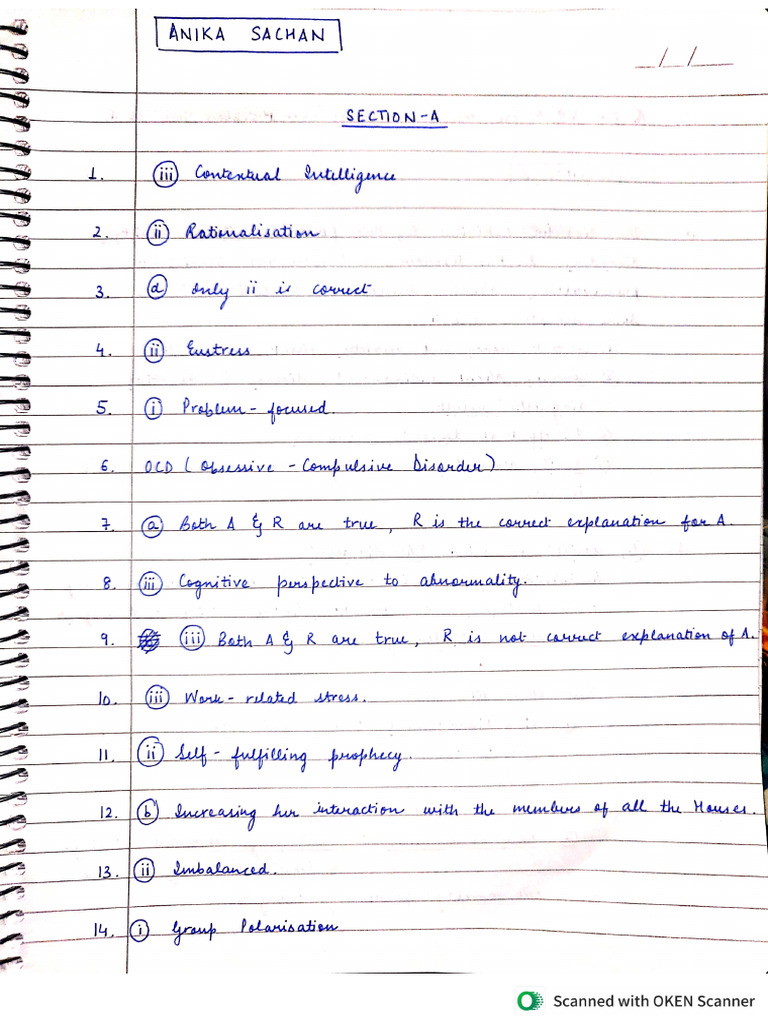 ANIKA SACHAN
_/_/__
SECTION-A
1. (iii) Contextual Intelligence
2. (ii) Rationalisation
3. (d) Only ii is correct
4. (ii) Eustress
5. (i) Problem-focused.
6. OCD (Obsessive-Compulsive Disorder)
7. (a) Both A & R are true, R is the correct explanation for A.
8. (iii) Cognitive perspective to abnormality.
9. (iii) Both A & R are true, R is not correct explanation of A.
10. (iii) Work-related stress.
11. (ii) Self-fulfilling prophecy.
12. (b) Increasing her interaction with the members of all the Houses.
13. (ii) Imbalanced.
14. (i) Group Polarisation
Scanned with OKEN Scanner